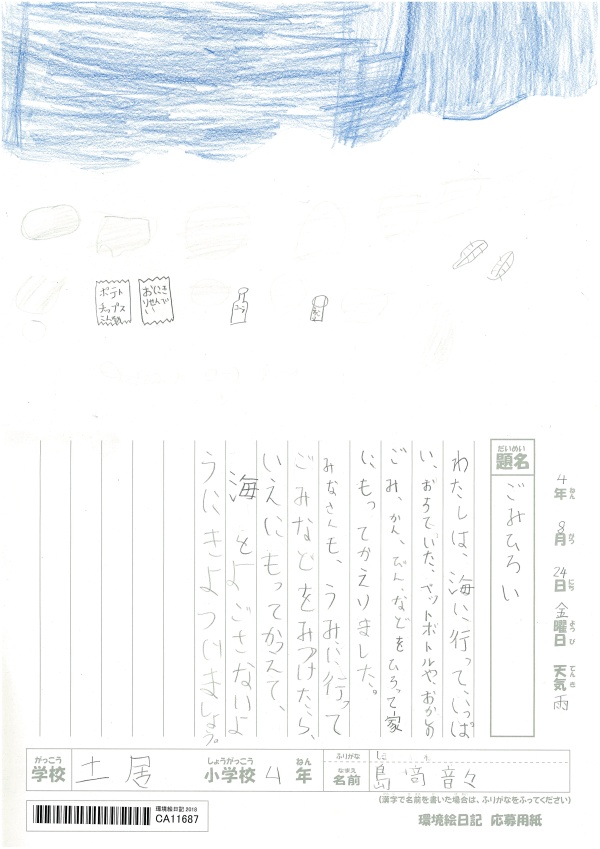 ポテト
チップス
おにぎ
りせんべ
い
4年 8月 24日 金曜日 天気 雨
ねん がつ にち ようび てんき
だいめい
題名
ごみひろい
わたしは、海に行って、いっぱ
い、おちていた、ペットボトルや、おかしの
ごみ、かん、びん、などをひろって家
に、もってかえりました。
みなさんも、うみに行って
ごみなどをみつけたら、
いえにもってかえて、
海をよごさないよ
うにきよつけましょう。
がっこう しょうがっこう ねん ふりがな
学校 土居 小学校 4年
なまえ
名前 島 音々
(漢字で名前を書いた場合は、ふりがなをふってください)
環境絵日記 2018
CA11687
環境絵日記 応募用紙